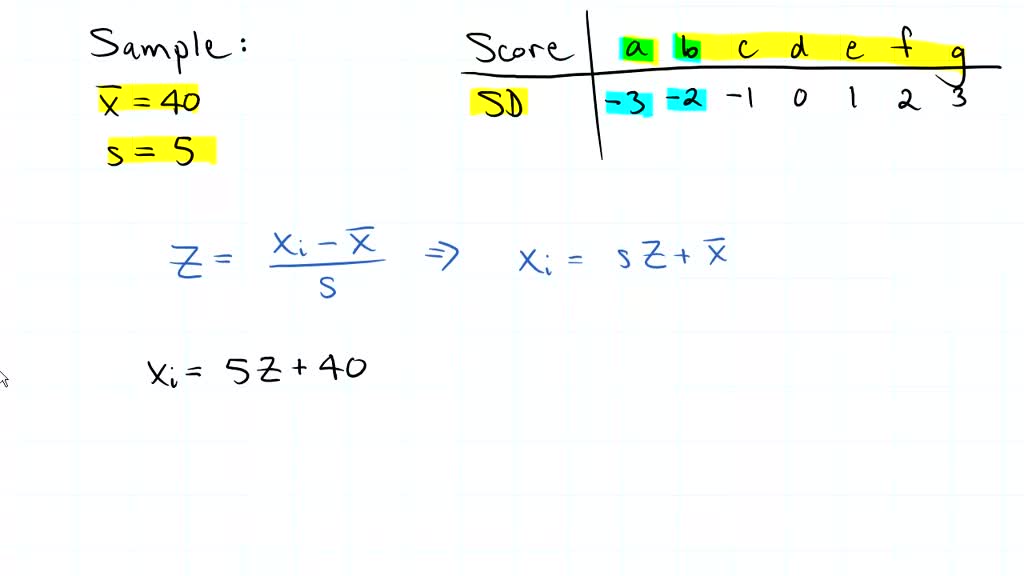 Sample:
x̄ = 40
s = 5
Score a b c d e f g
SD -3 -2 -1 0 1 2 3
Z = (xᵢ - x̄)/s ⇒ xᵢ = sZ + x̄
xᵢ = 5Z + 40